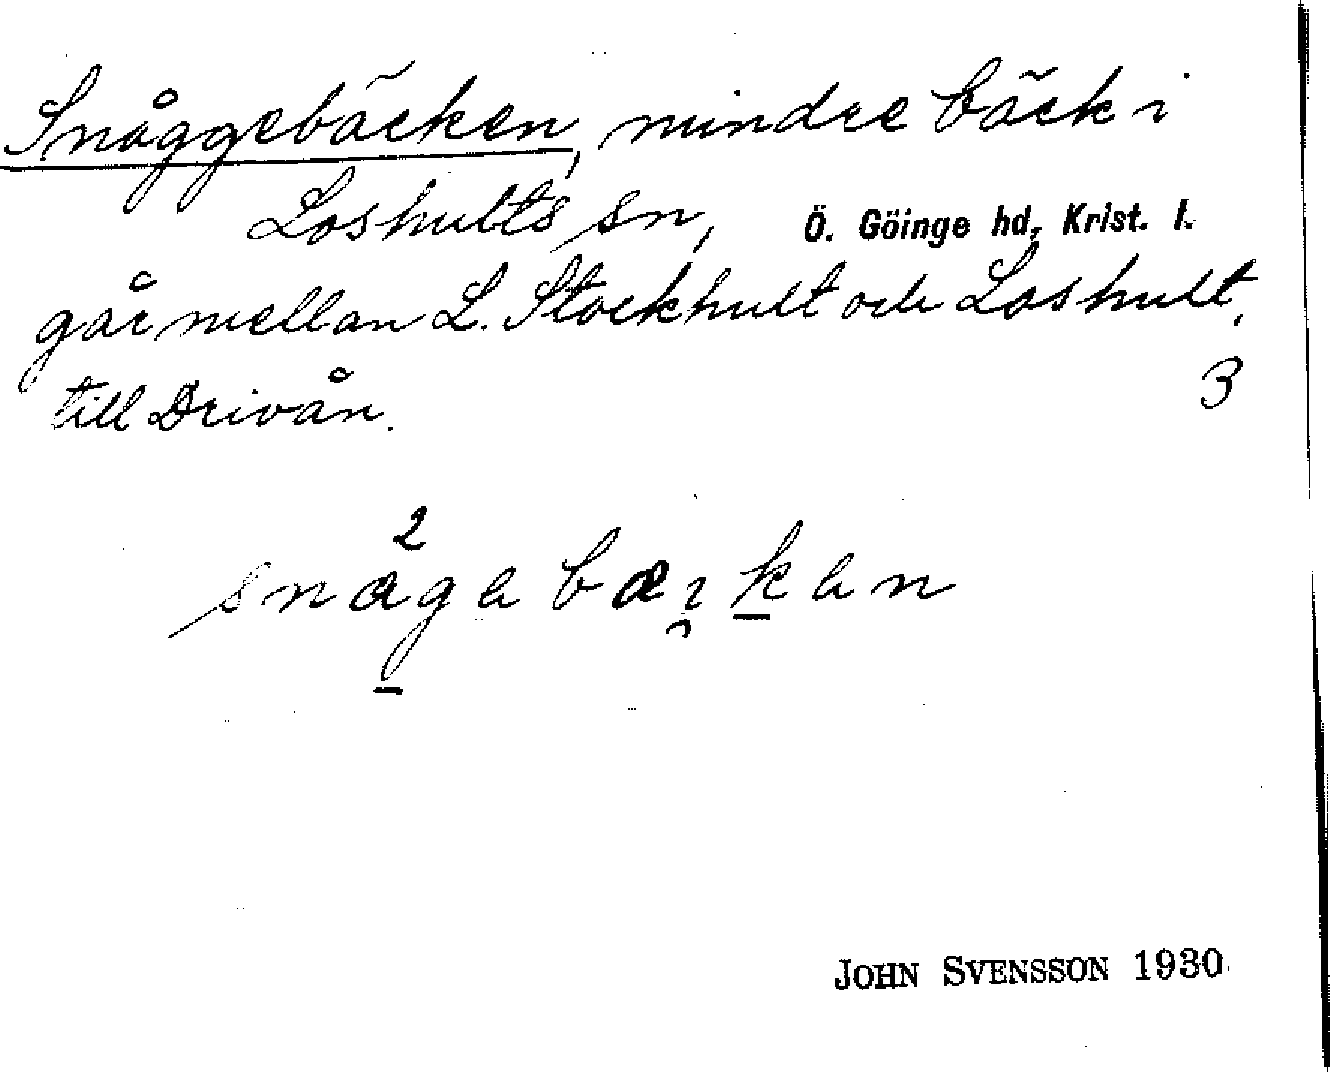 Snåggebäcken, mindre bäck i
Loshults sn, Ö. Göinge hd, Krist. l.
går mellan L. Stockhult och Loshult,
till Drivån.
3
2
snågabæikan
JOHN SVENSSON 1930